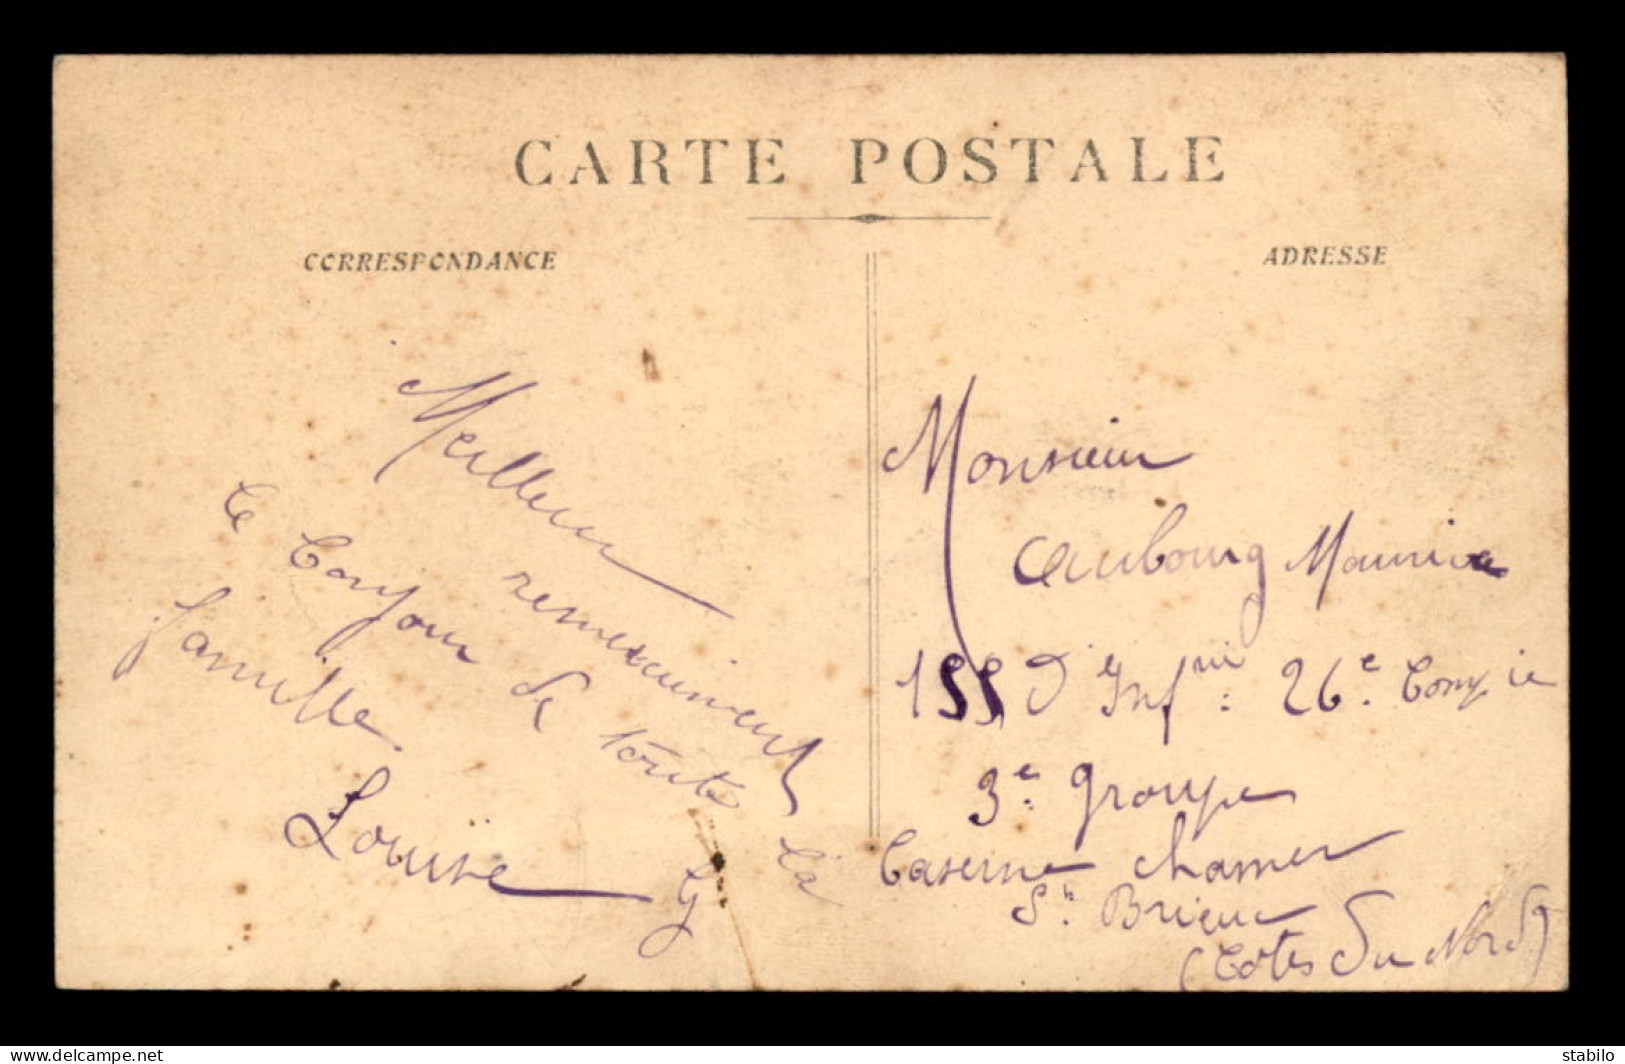 CARTE POSTALE
CORRESPONDANCE
ADRESSE
Meilleur
remerciement
Le Bonjour de toute la
famille
Louise G
Monsieur
Aubourg Maurice
155 d'Infrie: 26e. Compie
3e. groupe
Caserne
St. Brieuc
(Côtes du Nord)
www.delcampe.net
stabilo